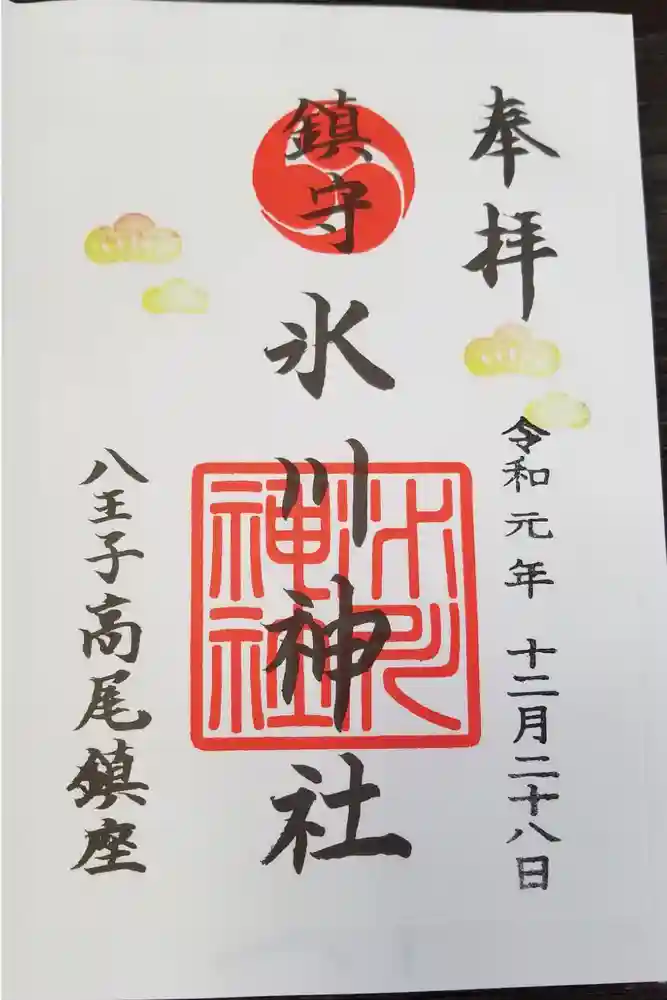 奉拝
令和元年 十二月二十八日
鎮守
氷川神社
氷川神社
八王子高尾鎮座